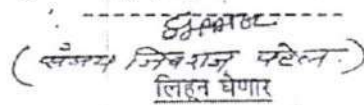 (संजय शिवराज पटेल.)
लिहून घेणार